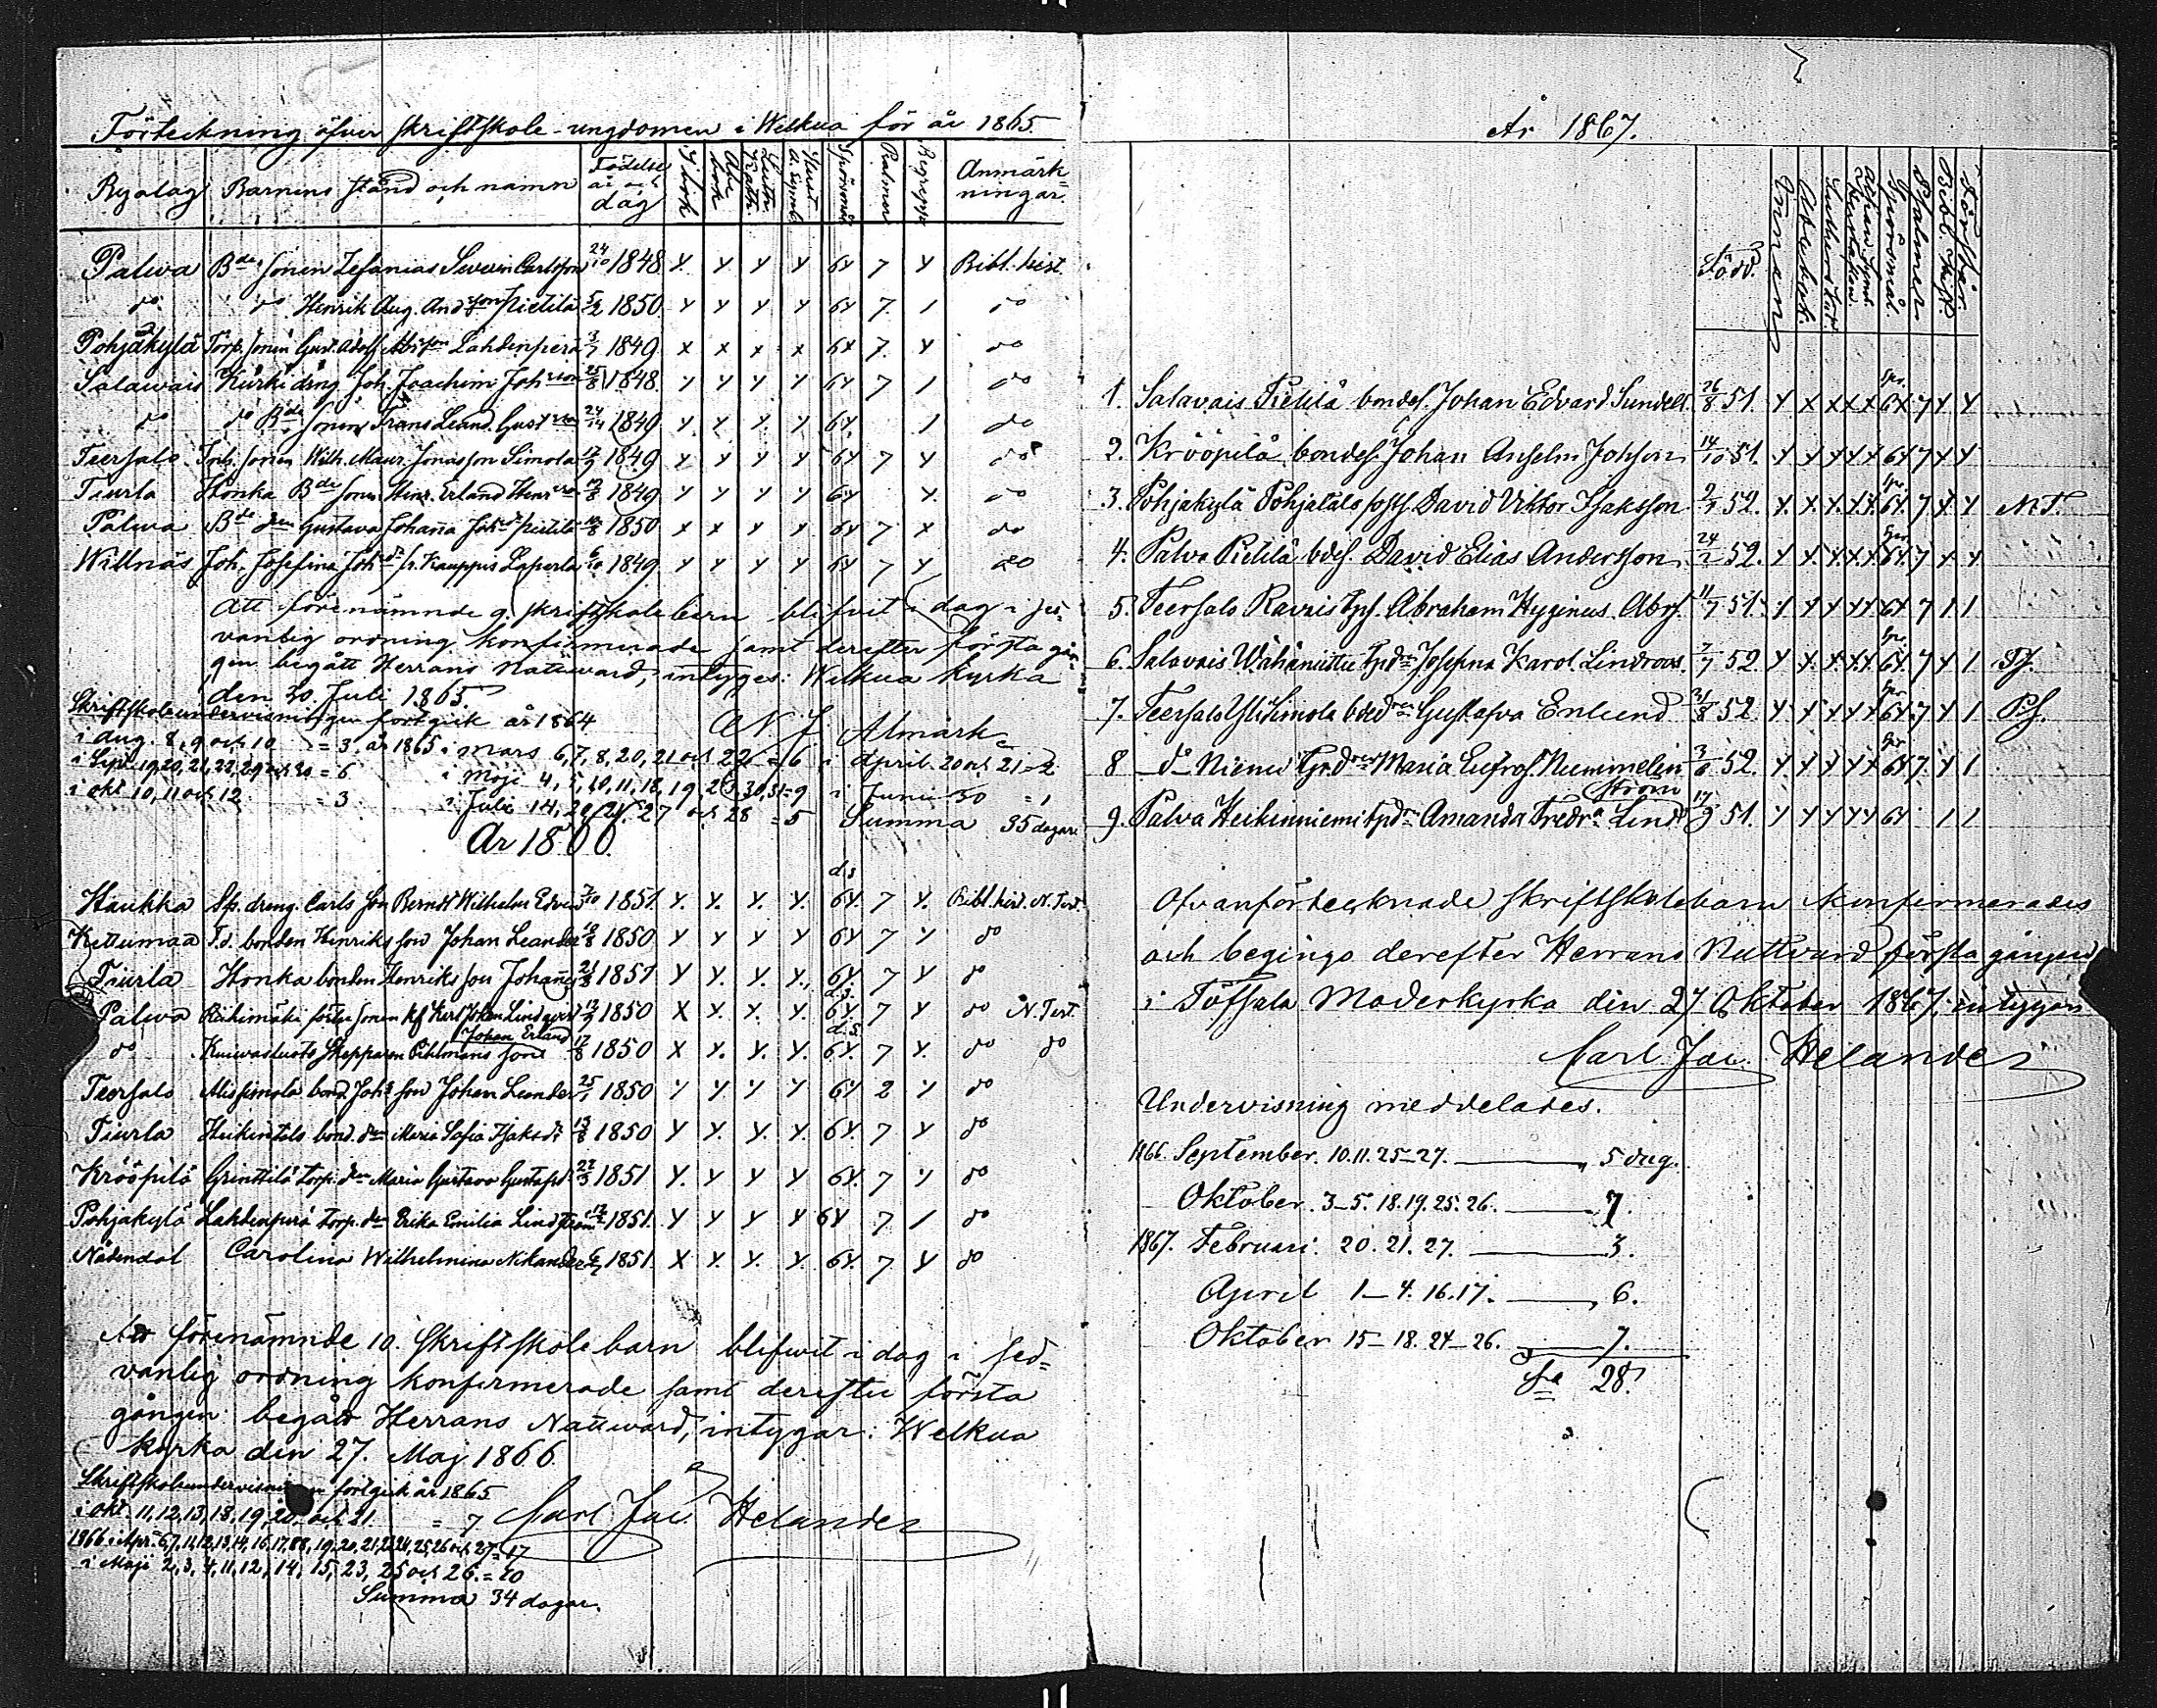 Förteckning öfver skriftskole-ungdomen i Welkua för år 1865.
Byalag Barnens stånd och namn Födelse år och dag I bok Abc bok Luth. Kat. Hust. A. Symb. Spörsmål Psalmer Begrepp Anmärkningar.
Palwa Bde sonen Zefanias Severin Carlsson 24/10 1848 X X X X 6X 7 X Bibl. hist.
do do Henrik Aug. Andson Pietilä 5/2 1850 X X X X 6X 7 1 do
Pohjakylä Torp. sonen Gust. Adolf Lahdenperä 3/7 1849 X X X X 6X 7 X do
Salawais Kürki dräng Joh. Joachim Johsson 25/8 1848. X X X X 6X 7 1 do
do do Bde sonen Frans Leand. Gustsson 1849 X X X X 6X 1 do
Teersalo Torp. sonen Wilh. Maur. Jonasson Simola 1849 X X X X 6X 7 X do
Tiurla Honka Bde sonen Henr. Erland Henrsson 1849 X X X X 6X X do
Palwa Bde dren Gustava Johanna Johsdr Pietilä 1850 X X X X 6X 7 X do
Willnäs Joh. Josefina Johdr fr. Kauppis Laperla 6/10 1849 X X X X 6X 7 X do
Att förenämnde 9. skriftskolebarn blifvit i dag i sed-
vanlig ordning konfirmerade samt derefter första gån-
gen begått Herrans Nattward, intyges: Welkua kyrka
den 30. Juli 1865.
A N J Almark
Skriftskoleundervisningen fortgick år 1864
i Aug. 8, 9 och 10 = 3. år 1865 i Mars 6, 7, 8, 20, 21 och 22 = 6 i April 20 och 21 = 2
i Sept. 19, 20, 21, 22, 29 och 30 = 6 i Maji 4, 5, 10, 11, 18, 19, 26, 30, 31 = 9 i Junii 30 = 1
i Okt 10, 11 och 12 = 3 i Juli 14, 27 och 28 = 5 Summa 35 dagar.
År 1866.
Haukka Sp. dreng. Carls son Berndt Wilhelm Edvard 7/10 1851 X. X. X. X. d.s 6X. 7 X. Bibl. hist. N. Test.
Kettumaa T.d. bonden Henriks son Johan Leander 18/8 1850 X X X X 6X 7 X do
Tiurla Honka bonden Henriks son Johannes 21/8 1851 X X. X. X. 6X. 7 X do
Palwa Riihimäki förre sonen Karl Johan Lindqvist 1850 X X. X. X. d.s. 6X 7 X do N. Test.
do Kuivasluoto Skepparen Pihlmans son Johan Erland 17/8 1850 X X. X. X. d.s. 6X. 7 X. do do
Teersalo Alissimola bond. Johs son Johan Leander 25/1 1850 X X X X 6X 2 X do
Tiurla Heikintalo bond. dren Maria Sofia Isaksdr 13/8 1850 X X. X. X. 6X. 7 X do
Krööpilä Grinttilä torp. dren Maria Gustava Gustafsd. 22/3 1851 X. X X X 6X. 7 X do
Pohjakylä Lahdenperä torp. dren Erika Emilia Lindström 1851. X X X X 6X 7 1 do
Nådendal Carolina Wilhelmina Nikander 1851. X X. X. X. 6X. 7 X do
Att förenämnde 10. skriftskolebarn blifwit i dag i sed-
vanlig ordning konfirmerade samt derefter första
gången begått Herrans Nattward, intygar: Welkua
kyrka den 27. Maj 1866.
Carl Jac. Helander
Skriftskoleundervisningen fortgick år 1865
i Okt. 11, 12, 13, 18, 19, 20, och 21. = 7
1866 i Apr. 6, 7, 11, 12, 13, 14, 16, 17, 18, 19, 20, 21, 23, 24, 25, 26 och 27 = 17
i Maji 2, 3, 4, 11, 12, 14, 15, 23, 25 och 26. = 10
Summa 34 dagar.
År 1867.
Född. Innan Abc bok. Luthers Kat. Hustaflan Athan. Symb. Spörsmål. Psalmer Bibl. Hist. Förstår.
1. Salavais Pietilä bondes. Johan Edvard Sundell. 26/8 51. X X X X X Spr. 6X 7 X X
2. Krööpilä bondes. Johan Anselm Johsson 14/10 51. X X X X X 6X 7 X X
3. Pohjakylä Pohjatalo David Viktor Isaksson 52. X. X X. X X Spr. 6X. 7 X X N.T.
4. Palva Pietilä bdes. David Elias Andersson 52. X X. X. X. X Spr. 6X. 7 X X
5. Teersalo Ravais tps. Abraham Hyginus Abrs. 11/7 51. X X X X X 6X. 7 1 1
6. Salavais Wähäniittu tpdr Josefina Karol. Lindroos 7/7 52 X X. X X X Spr. 6X. 7 X 1 Ps.
7. Teersalo Yli Simola bdedr Gustafva Enlund 31/8 52. X X X X X Spr 6X. 7 X 1 Ps.
8 do Niemi tpdr Maria Eufros. Nummelin 3/6 52. X. X X X X Spr 6X 7. X 1
9. Palva Heikinniemi tpdr Amanda Fredra Lindström 17/9 51. X X X X X 6X 1 1
Ofvanförtecknade skriftskolebarn konfirmerades
och begingo derefter Herrans Nattvard första gången
i Töfsala Moderkyrka den 27 Oktober 1867; intygar
Carl Jac. Helander
Undervisning meddelades.
1866. September. 10. 11. 25-27. 5 dag.
Oktober. 3-5. 18. 19. 25. 26. 7.
1867. Februari. 20. 21. 27. 3.
April 1-4. 16. 17. 6.
Oktober 15-18. 24-26. 7.
Sa 28.